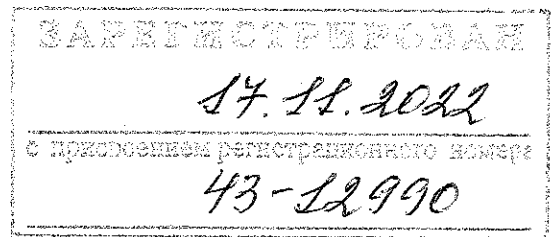 ЗАРЕГИСТРИРОВАН
17.11.2022
с присвоением регистрационного номера
43-12990